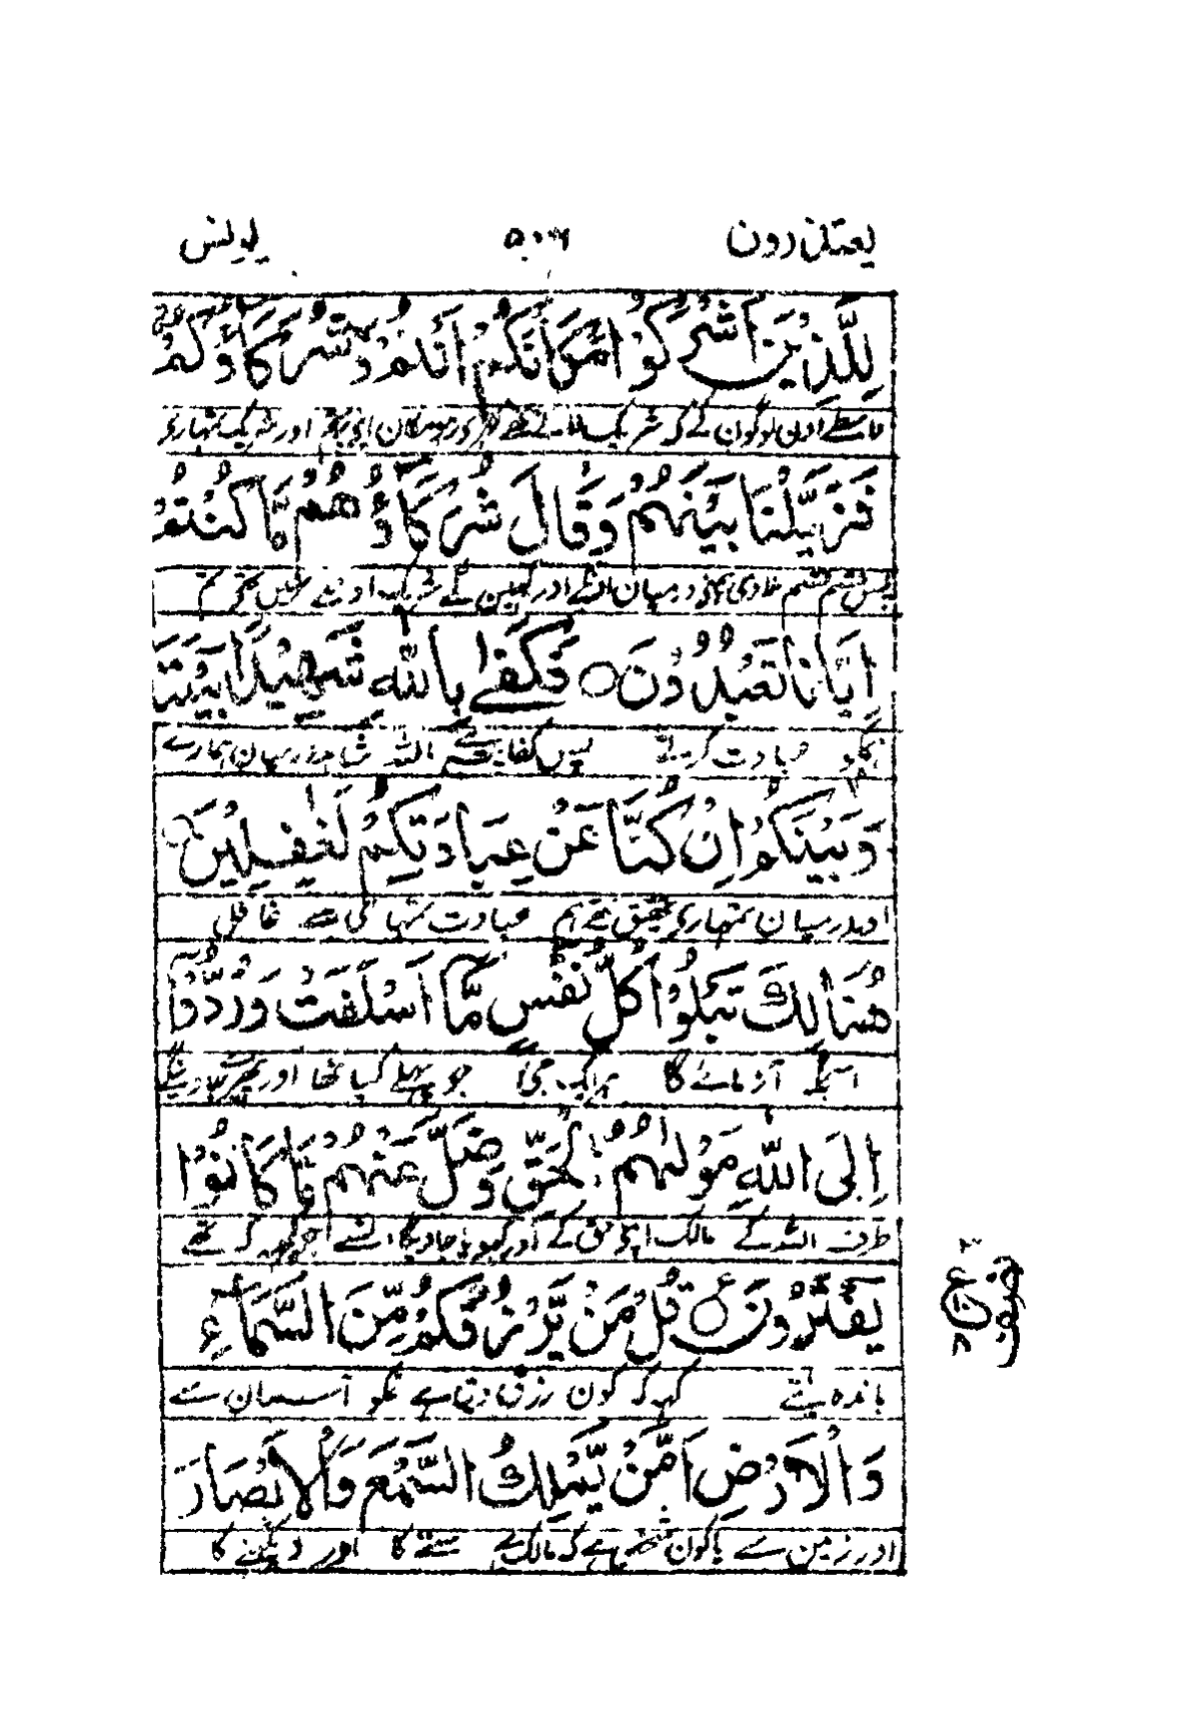 یعتذرون ۵۰۶ یونس
لِلَّذِيْنَ اَشْرَكُوْا مَكَانَكُمْ اَنْتُمْ وَشُرَكَآؤُكُمْ
واسطے اون لوگون کے کہ شریک لائے تھے اور شریک تمہارے
فَزَيَّلْنَا بَيْنَهُمْ وَقَالَ شُرَكَآؤُهُمْ مَّا كُنْتُمْ
پس درمیان انکے اور کہین گے شریک اونکے نہیں تھے تم
اِيَّانَا تَعْبُدُوْنَ ○ فَكَفٰى بِاللّٰهِ شَهِيْدًا بَيْنَنَا
ہمکو عبادت کرتے پس کفایت ہے اللہ شاہد درمیان ہمارے
وَبَيْنَكُمْ اِنْ كُنَّا عَنْ عِبَادَتِكُمْ لَغٰفِلِيْنَ ○
اور درمیان تمہارے تحقیق تھے ہم عبادت تمہاری سے غافل
هُنَالِكَ تَبْلُوْا كُلُّ نَفْسٍ مَّا اَسْلَفَتْ وَرُدُّوْٓا
اسجگہ آزمائے گا ہر ایک جی جو پہلے کیا تھا اور پھیرے جاوینگے
اِلَى اللّٰهِ مَوْلٰىهُمُ الْحَقِّ وَضَلَّ عَنْهُمْ مَّا كَانُوْا
طرف اللہ کے مالک اپنے حق کے اور کھویا جاویگا انسے جو کچھ کہ تھے
يَفْتَرُوْنَ ○ ع قُلْ مَنْ يَّرْزُقُكُمْ مِّنَ السَّمَآءِ
باندھ لیتے کہہ کہ کون رزق دیتا ہے تمکو آسمان سے
وَالْاَرْضِ اَمَّنْ يَّمْلِكُ السَّمْعَ وَالْاَبْصَارَ
اور زمین سے یا کون شخص ہے کہ مالک ہے سننے کا اور دیکھنے کا